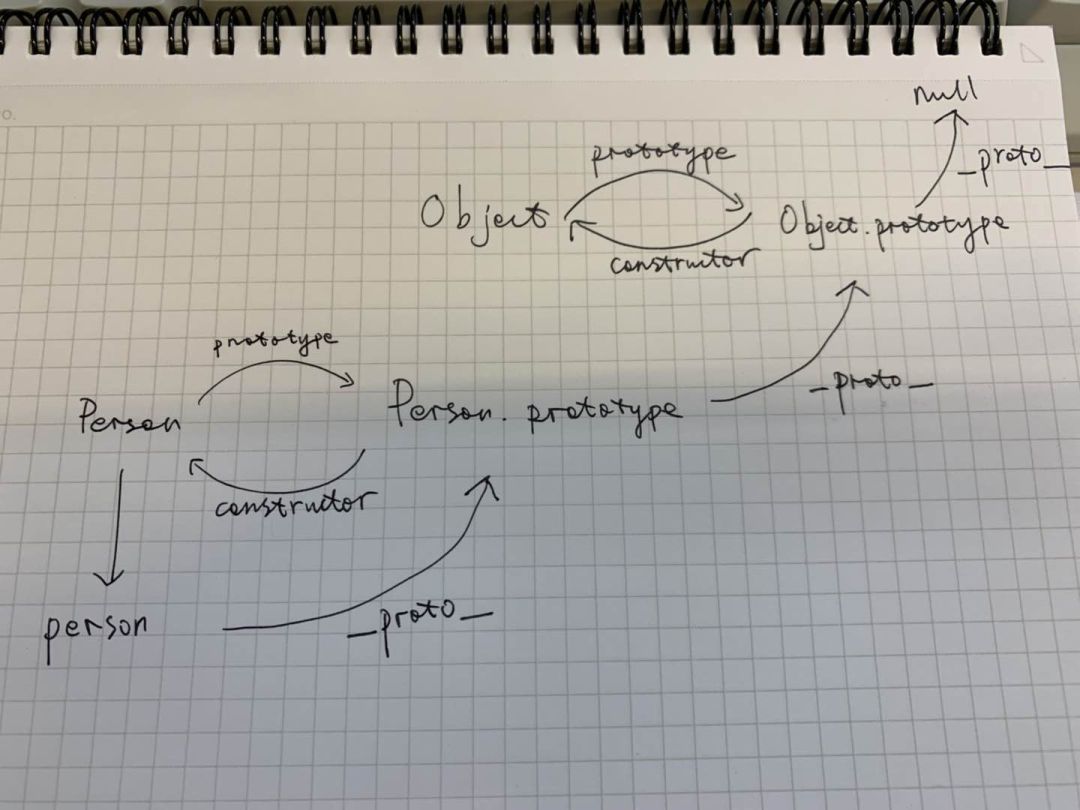 null
prototype
_proto_
Object
Object.prototype
constructor
prototype
_proto_
Person
Person.prototype
constructor
person
_proto_